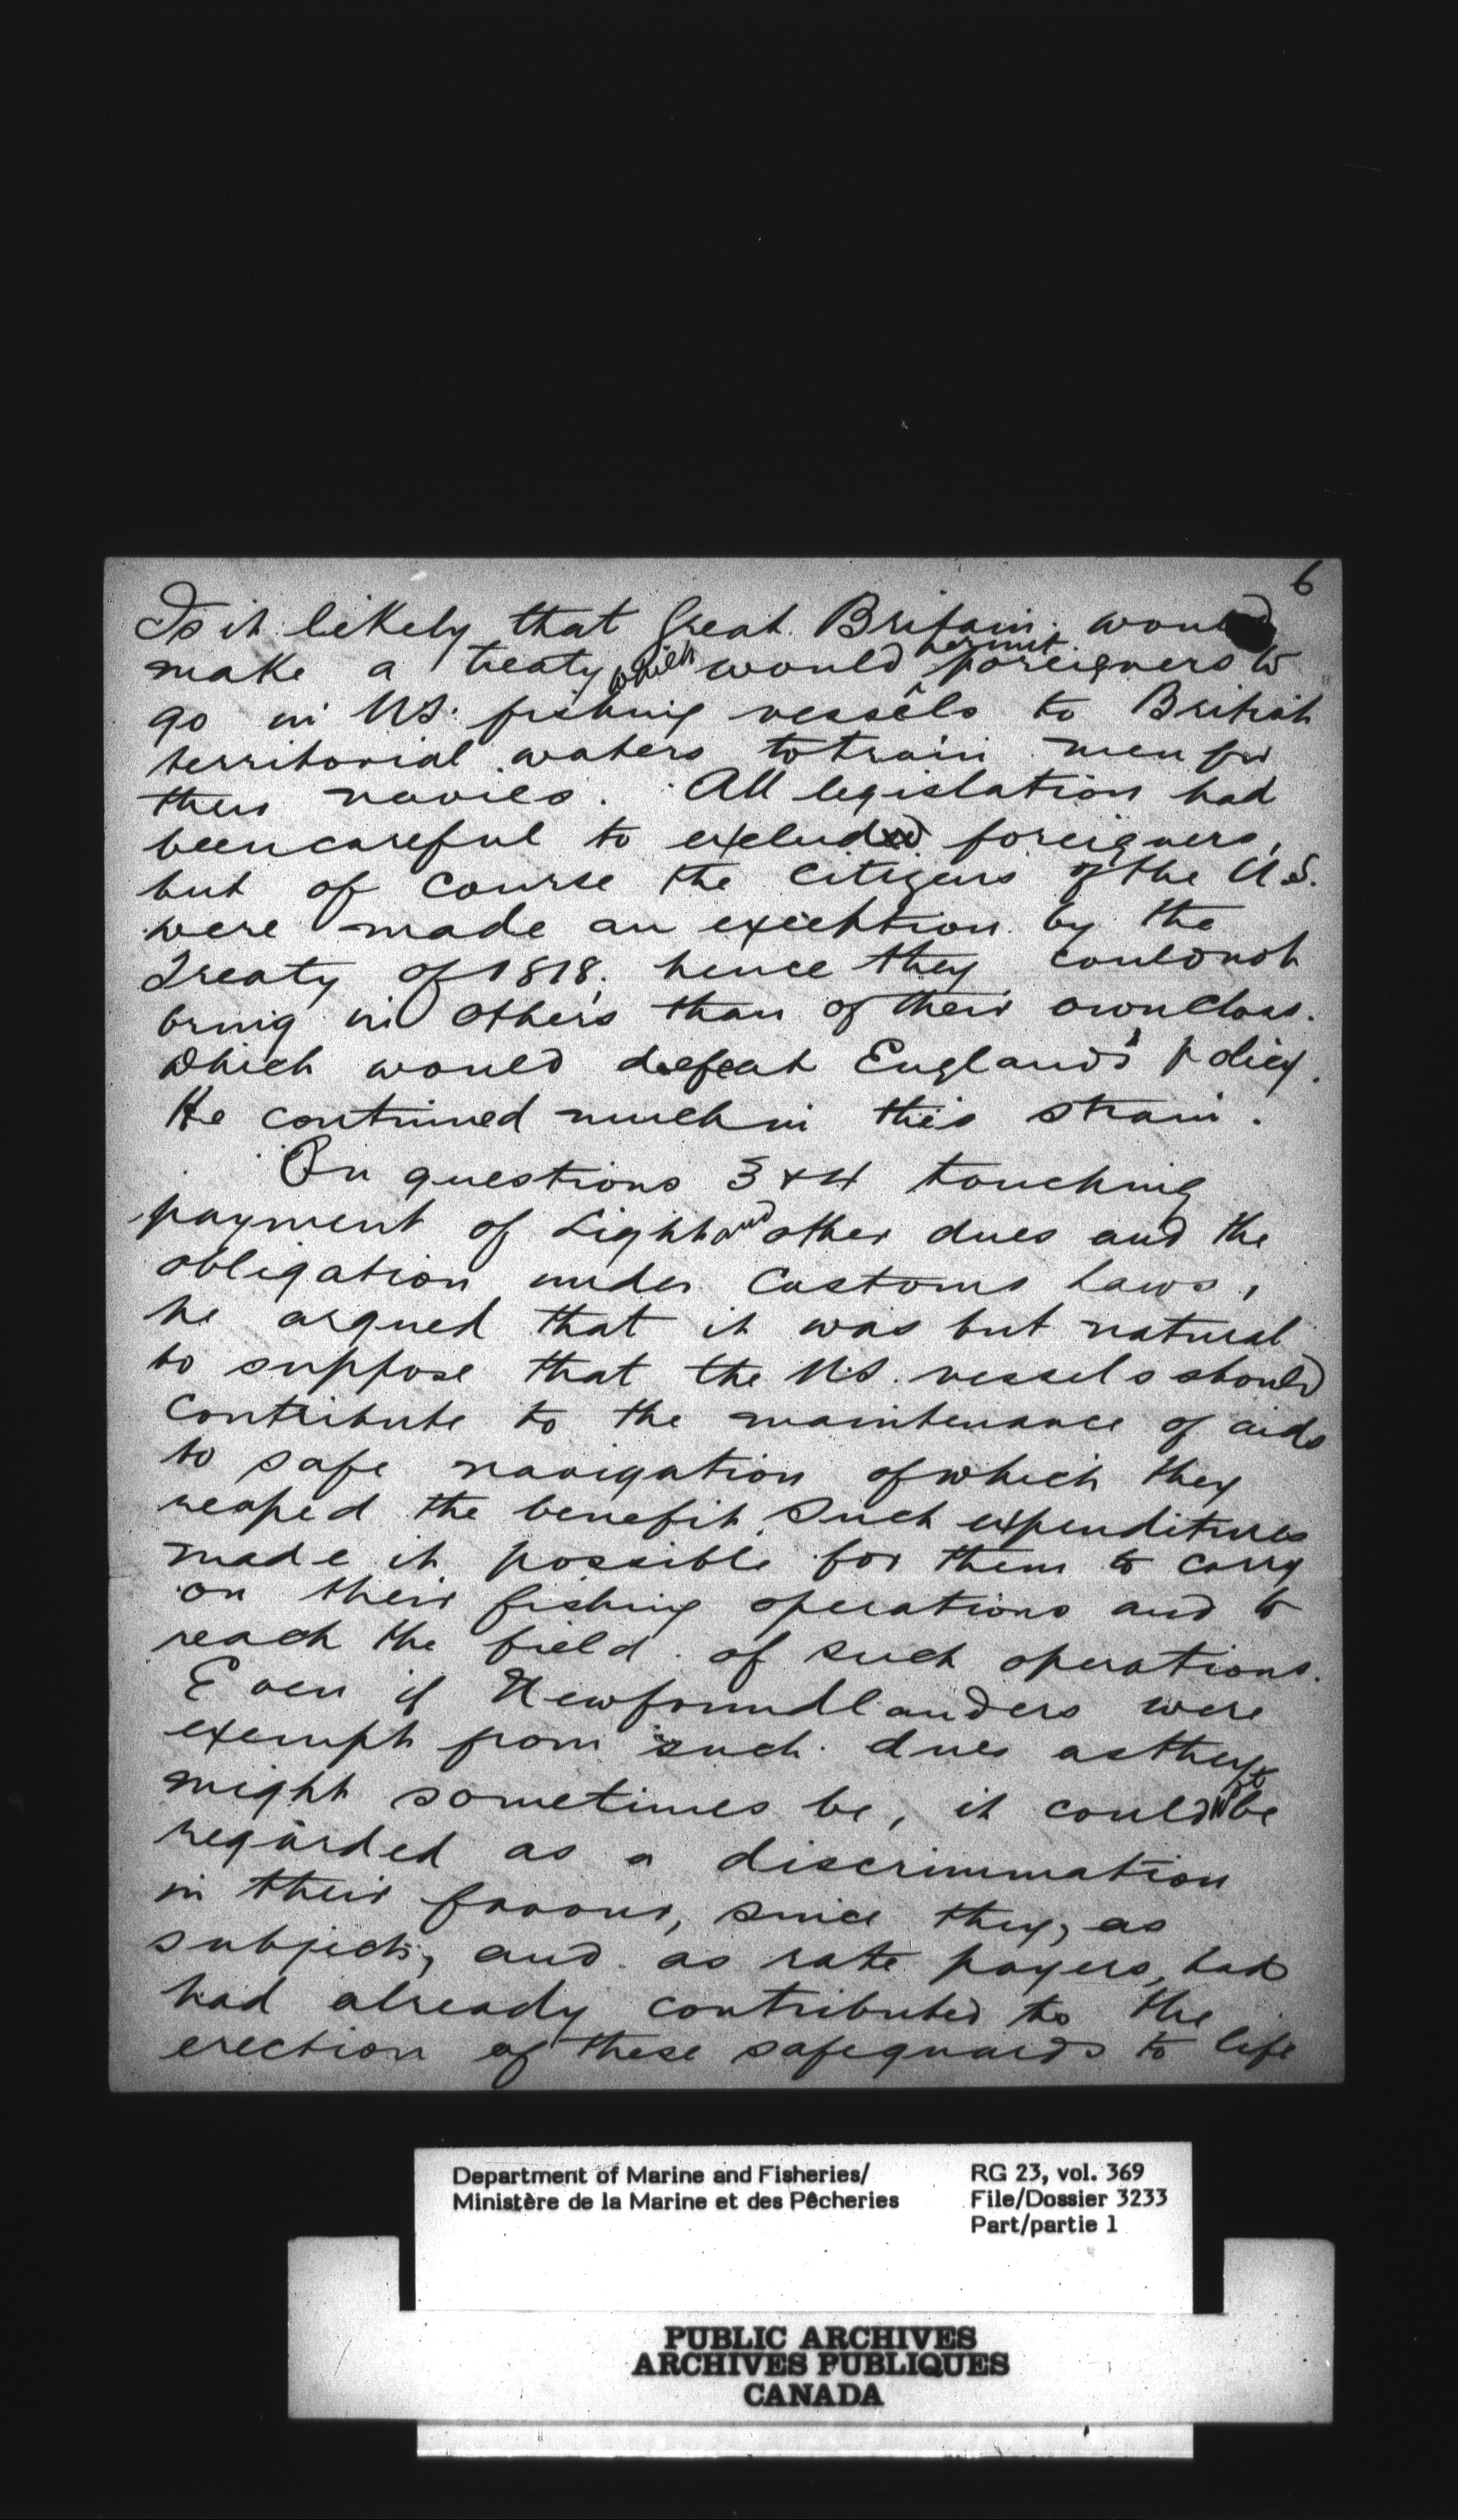 6
Is it likely that Great Britain would
make a treaty which would permit foreigners to
go in U.S. fishing vessels to British
territorial waters to train men for
their navies. All legislation had
been careful to exclude foreigners,
but of course the citizens of the U.S.
were made an exception by the
Treaty of 1818; hence they could not
bring in others than of their own class.
which would defeat England's policy.
He continued much in this strain.
On questions 3 & 4 touching
payment of Light and other dues and the
obligation under Customs Laws,
he argued that it was but natural
to suppose that the U.S. vessels should
contribute to the maintenance of aids
to safe navigation of which they
reaped the benefit. Such expenditures
made it possible for them to carry
on their fishing operations and to
reach the field of such operations.
Even if Newfoundlanders were
exempt from such dues as they
might sometimes be, it could not be
regarded as a discrimination
in their favour, since they, as
subjects, and as rate payers, had
had already contributed to the
erection of these safeguards to life
Department of Marine and Fisheries/
Ministère de la Marine et des Pêcheries
RG 23, vol. 369
File/Dossier 3233
Part/partie 1
PUBLIC ARCHIVES
ARCHIVES PUBLIQUES
CANADA